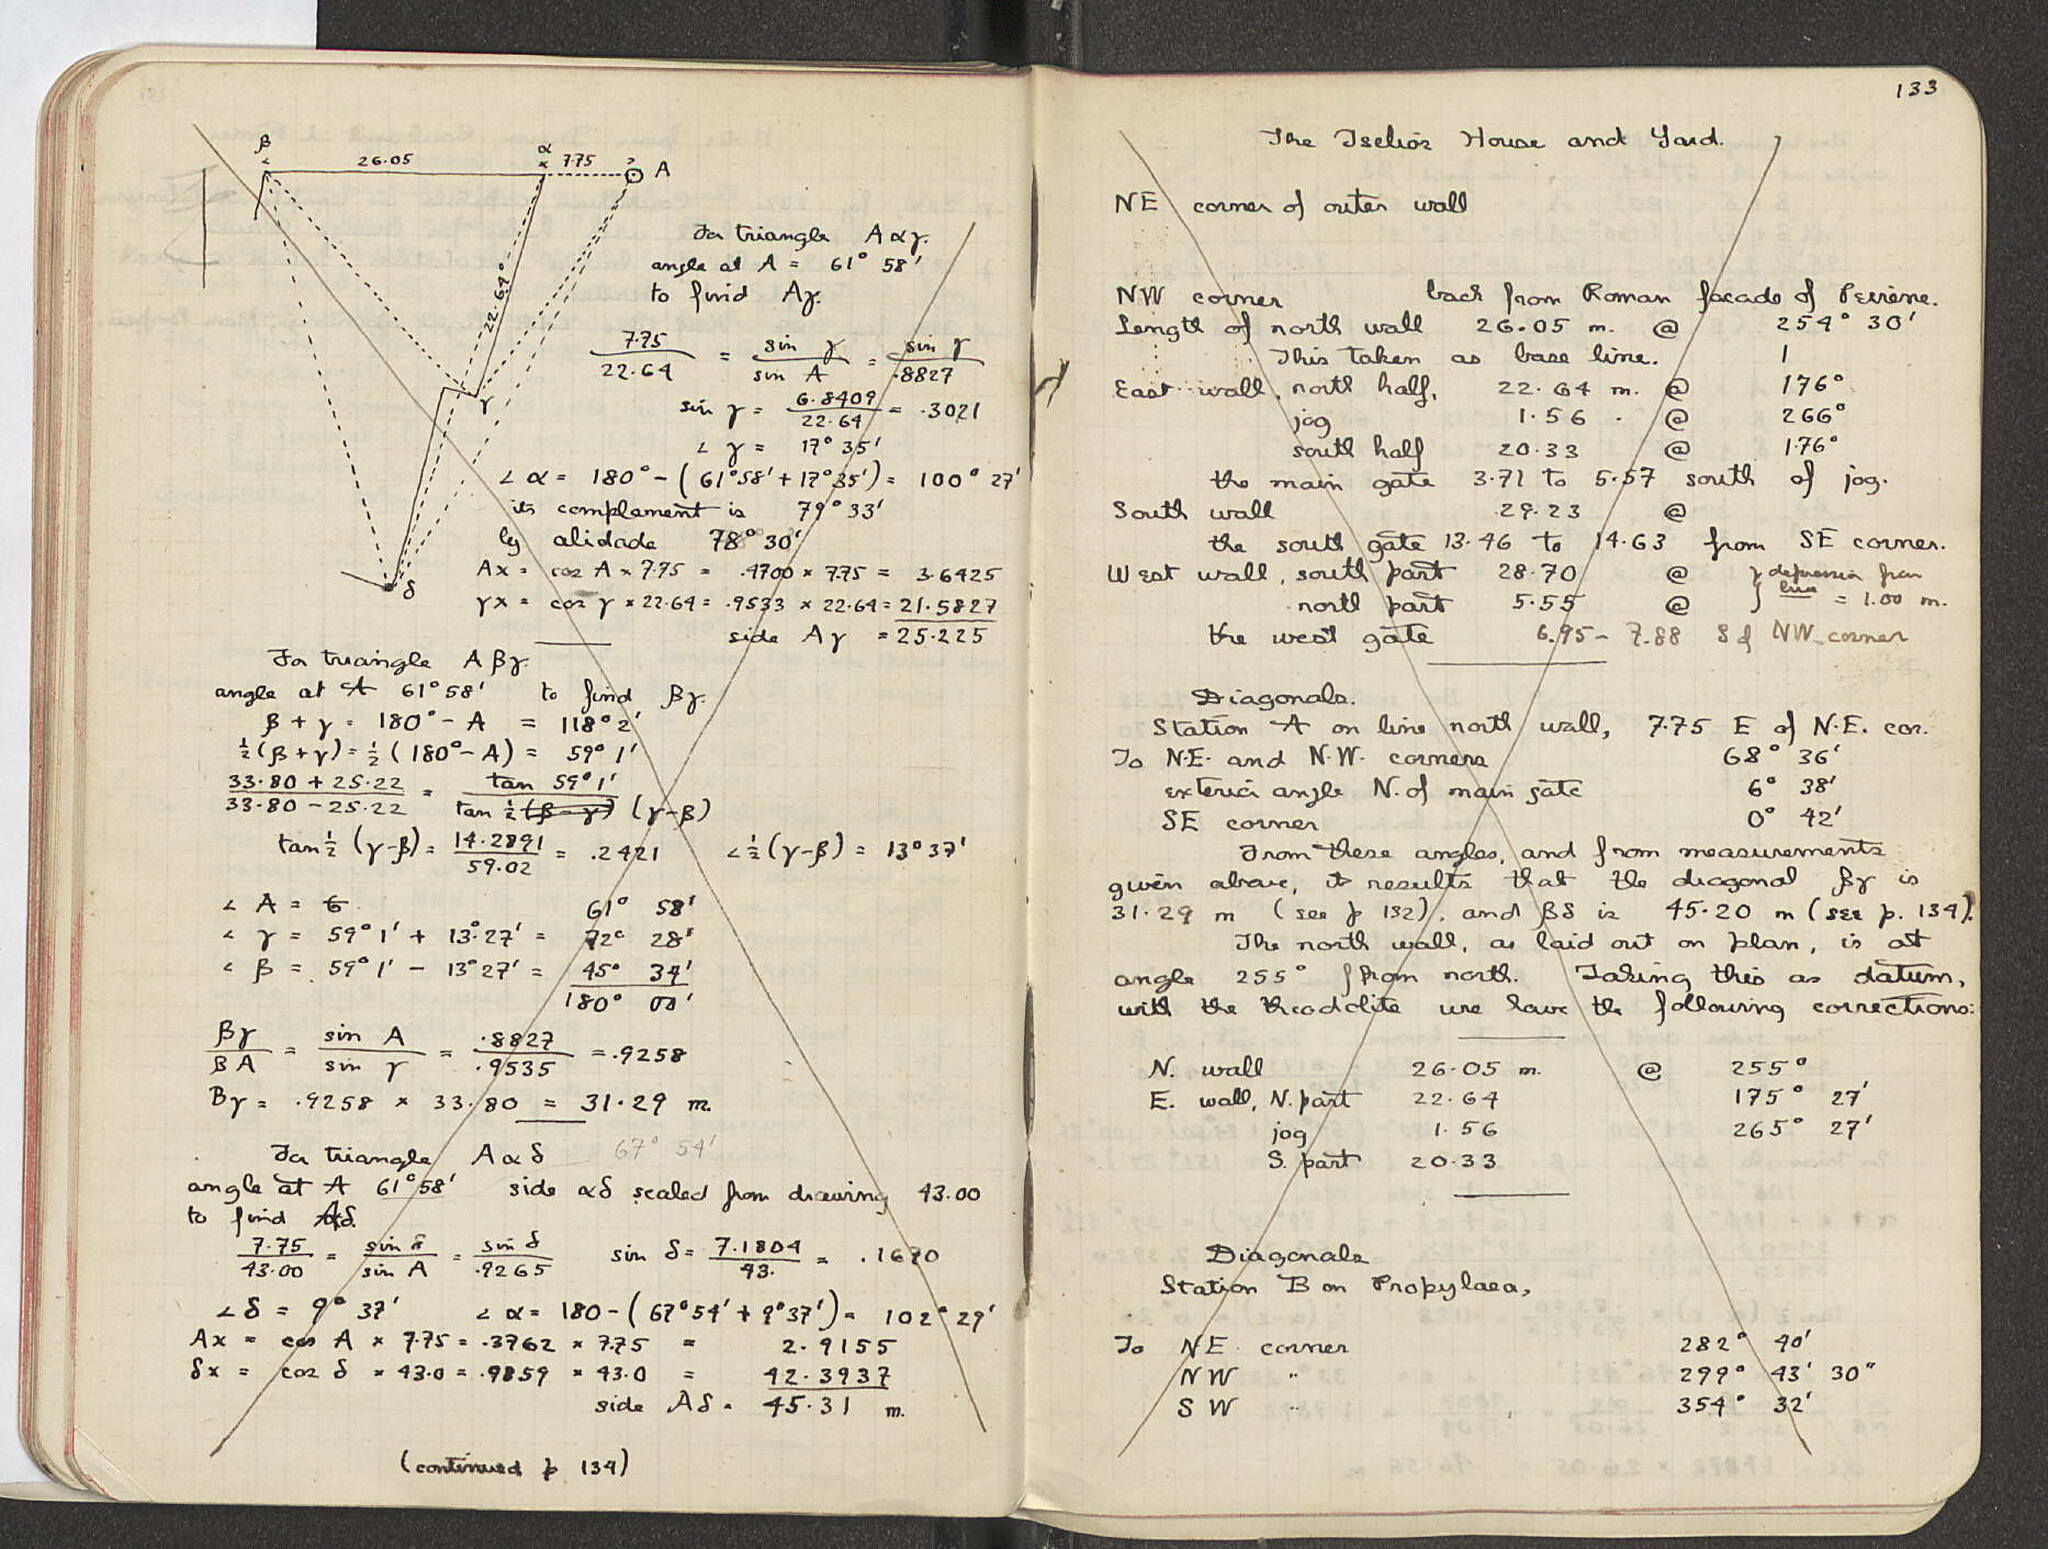 β 26.05 α 7.75 A
22.64
γ
δ
For triangle Aαγ.
angle at A = 61° 58'
to find Aγ.
7.75 / 22.64 = sin γ / sin A = sin γ / .8827
sin γ = 6.8409 / 22.64 = .3021
∠ γ = 17° 35'
∠ α = 180° - (61°58' + 17°35') = 100° 27'
its complement is 79° 33'
by alidade 78° 30'
Ax = cos A × 7.75 = .4700 × 7.75 = 3.6425
γx = cos γ × 22.64 = .9533 × 22.64 = 21.5827
side Aγ = 25.225
For triangle Aβγ.
angle at A 61° 58' to find βγ.
β + γ = 180° - A = 118° 2'
½(β+γ) = ½(180° - A) = 59° 1'
33.80 + 25.22 / 33.80 - 25.22 = tan 59° 1' / tan ½ (β-γ) (γ-β)
tan ½ (γ-β) = 14.2891 / 59.02 = .2421 ∠ ½ (γ-β) = 13° 37'
∠ A = 6 61° 58'
∠ γ = 59° 1' + 13° 27' = 72° 28'
∠ β = 59° 1' - 13° 27' = 45° 34'
180° 00'
βγ / βA = sin A / sin γ = .8827 / .9535 = .9258
βγ = .9258 × 33.80 = 31.29 m.
For triangle Aαδ 67° 54'
angle at A 61° 58' side αδ scaled from drawing 43.00
to find Aδ.
7.75 / 43.00 = sin / sin A = sin δ / .9265 sin δ = 7.1804 / 43. = .1670
∠ δ = 9° 37' ∠ α = 180 - (67° 54' + 9° 37') = 102° 29'
Ax = cos A × 7.75 = .3762 × 7.75 = 2.9155
δx = cos δ × 43.0 = .9859 × 43.0 = 42.3937
side Aδ = 45.31 m.
(continued p 134)
133
The Tselios House and Yard.
NE corner of outer wall
NW corner back from Roman facade of Peirene.
Length of north wall 26.05 m. @ 254° 30'
This taken as base line.
East wall, north half, 22.64 m. @ 176°
jog 1.56 @ 266°
south half 20.33 @ 176°
the main gate 3.71 to 5.57 south of jog.
South wall 29.23 @
the south gate 13.46 to 14.63 from SE corner.
West wall, south part 28.70 @ } depression from
north part 5.55 @ line = 1.00 m.
the west gate 6.95 - 7.88 S of NW corner
Diagonals.
Station A on line north wall, 7.75 E of N.E. cor.
To N.E. and N.W. corners 68° 36'
exterior angle N. of main gate 6° 38'
SE corner 0° 42'
From these angles, and from measurements
given above, it results that the diagonal βγ is
31.29 m (see p 132), and βδ is 45.20 m (see p. 134).
The north wall, as laid out on plan, is at
angle 255° from north. Taking this as datum,
with the theodolite we have the following corrections:
N. wall 26.05 m. @ 255°
E. wall, N. part 22.64 175° 27'
jog 1.56 265° 27'
S. part 20.33
Diagonals
Station B on Propylaea,
To NE corner 282° 40'
NW " 299° 43' 30"
SW " 354° 32'